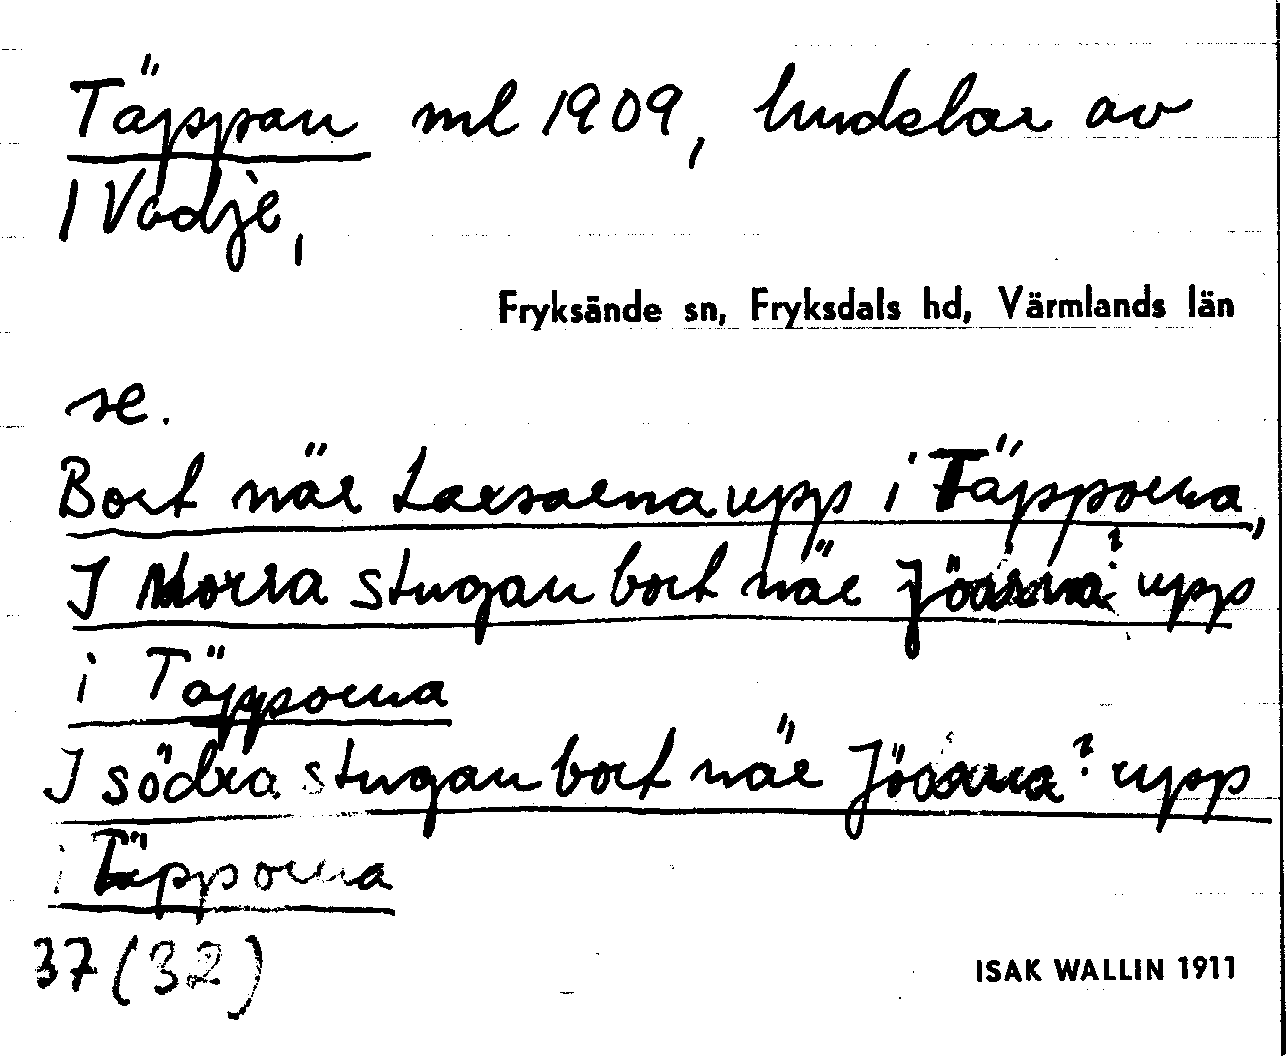 Täppan ml 1909, hudelar av
1 Vadje,
Fryksände sn, Fryksdals hd, Värmlands län
se.
Bort när Larsarna upp i Täpporna,
I Norra stugan bort när upp
i Täpporna
I södra stugan bort när upp
i Täpporna
37 (32)
ISAK WALLIN 1911